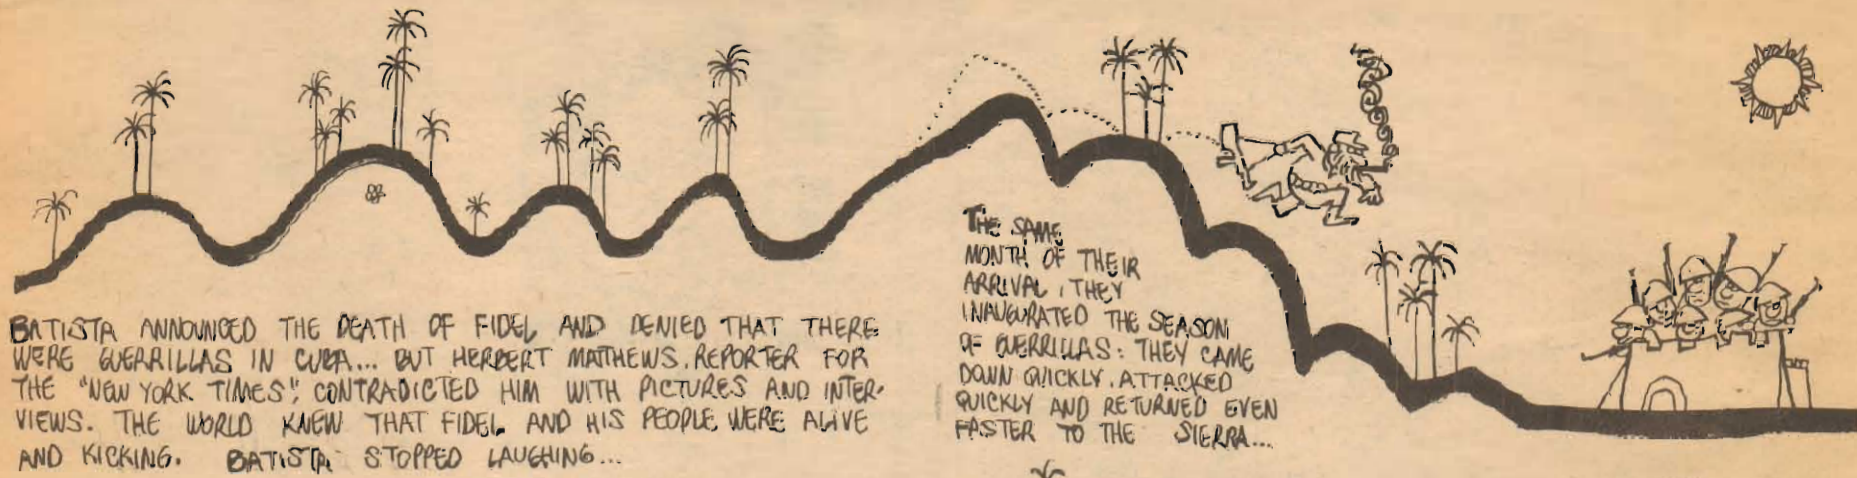 BATISTA ANNOUNCED THE DEATH OF FIDEL AND DENIED THAT THERE
WERE GUERRILLAS IN CUBA... BUT HERBERT MATTHEWS. REPORTER FOR
THE "NEW YORK TIMES", CONTRADICTED HIM WITH PICTURES AND INTER-
VIEWS. THE WORLD KNEW THAT FIDEL AND HIS PEOPLE WERE ALIVE
AND KICKING. BATISTA STOPPED LAUGHING...
THE SAME
MONTH OF THEIR
ARRIVAL, THEY
INAUGURATED THE SEASON
OF GUERRILLAS: THEY CAME
DOWN QUICKLY. ATTACKED
QUICKLY AND RETURNED EVEN
FASTER TO THE SIERRA...